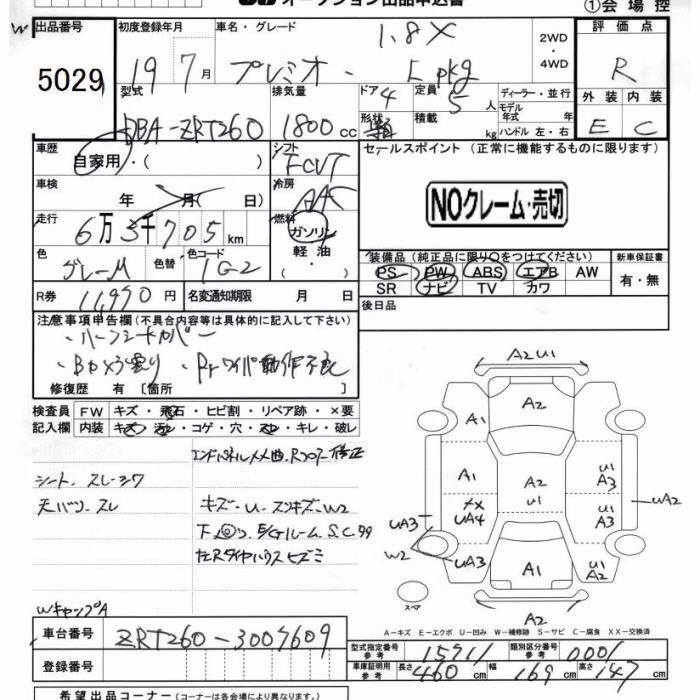 オークション出品申込書
①会場控
出品番号 初度登録年月 車名・グレード 1.8X 2WD ・ 4WD 評価点
5029 19 7月 プレミオ L pkg R
型式 排気量 ドア 4 定員 5人 ディーラー・並行 外装 内装
DBA-ZRT260 1800cc 形状 積載 kg モデル年式 年 ハンドル 左・右 E C
車歴 自家用・( ) シフト FCVT セールスポイント (正常に機能するものに限ります)
車検 年 月(日) 冷房 AAC
NOクレーム・売切
走行 6万3千705km 燃料 ガソリン 軽油
色 グレーM 色替 色コード 1G2 ・( )
装備品 (純正品に限り○をつけてください) 新車保証書
PS PW ABS エアB AW 有・無
SR ナビ TV カワ
R券 11,970円 名変通知期限 月 日 後日品
注意事項申告欄 (不具合内容等は具体的に記入して下さい)
・ハーフシートカバー
修復歴 有 [箇所 ]
検査員 FW キズ・飛石・ヒビ割・リペア跡・×要
記入欄 内装 キズ・汚レ・コゲ・穴・スレ・キレ・破レ
シート、スレ・シワ
天バリ・スレ キズ・U・スリキズ・W2
WキャップA
A2U1
A2
A1
A1 A2 U1 A3
U1
UA4 U1 A3 UA2
UA3
W2 UA3 A1 U1 A2
スペア A2
A-キズ E-エクボ U-凹み W-補修跡 S-サビ C-腐食 XX-交換済
車台番号 ZRT260-3007609
型式指定番号 参考 15711 類別区分番号 参考 0001
登録番号 車庫証明用 参考 長さ 460cm 幅 169cm 高さ 147cm
希望出品コーナー (コーナーは各会場により異なります。)